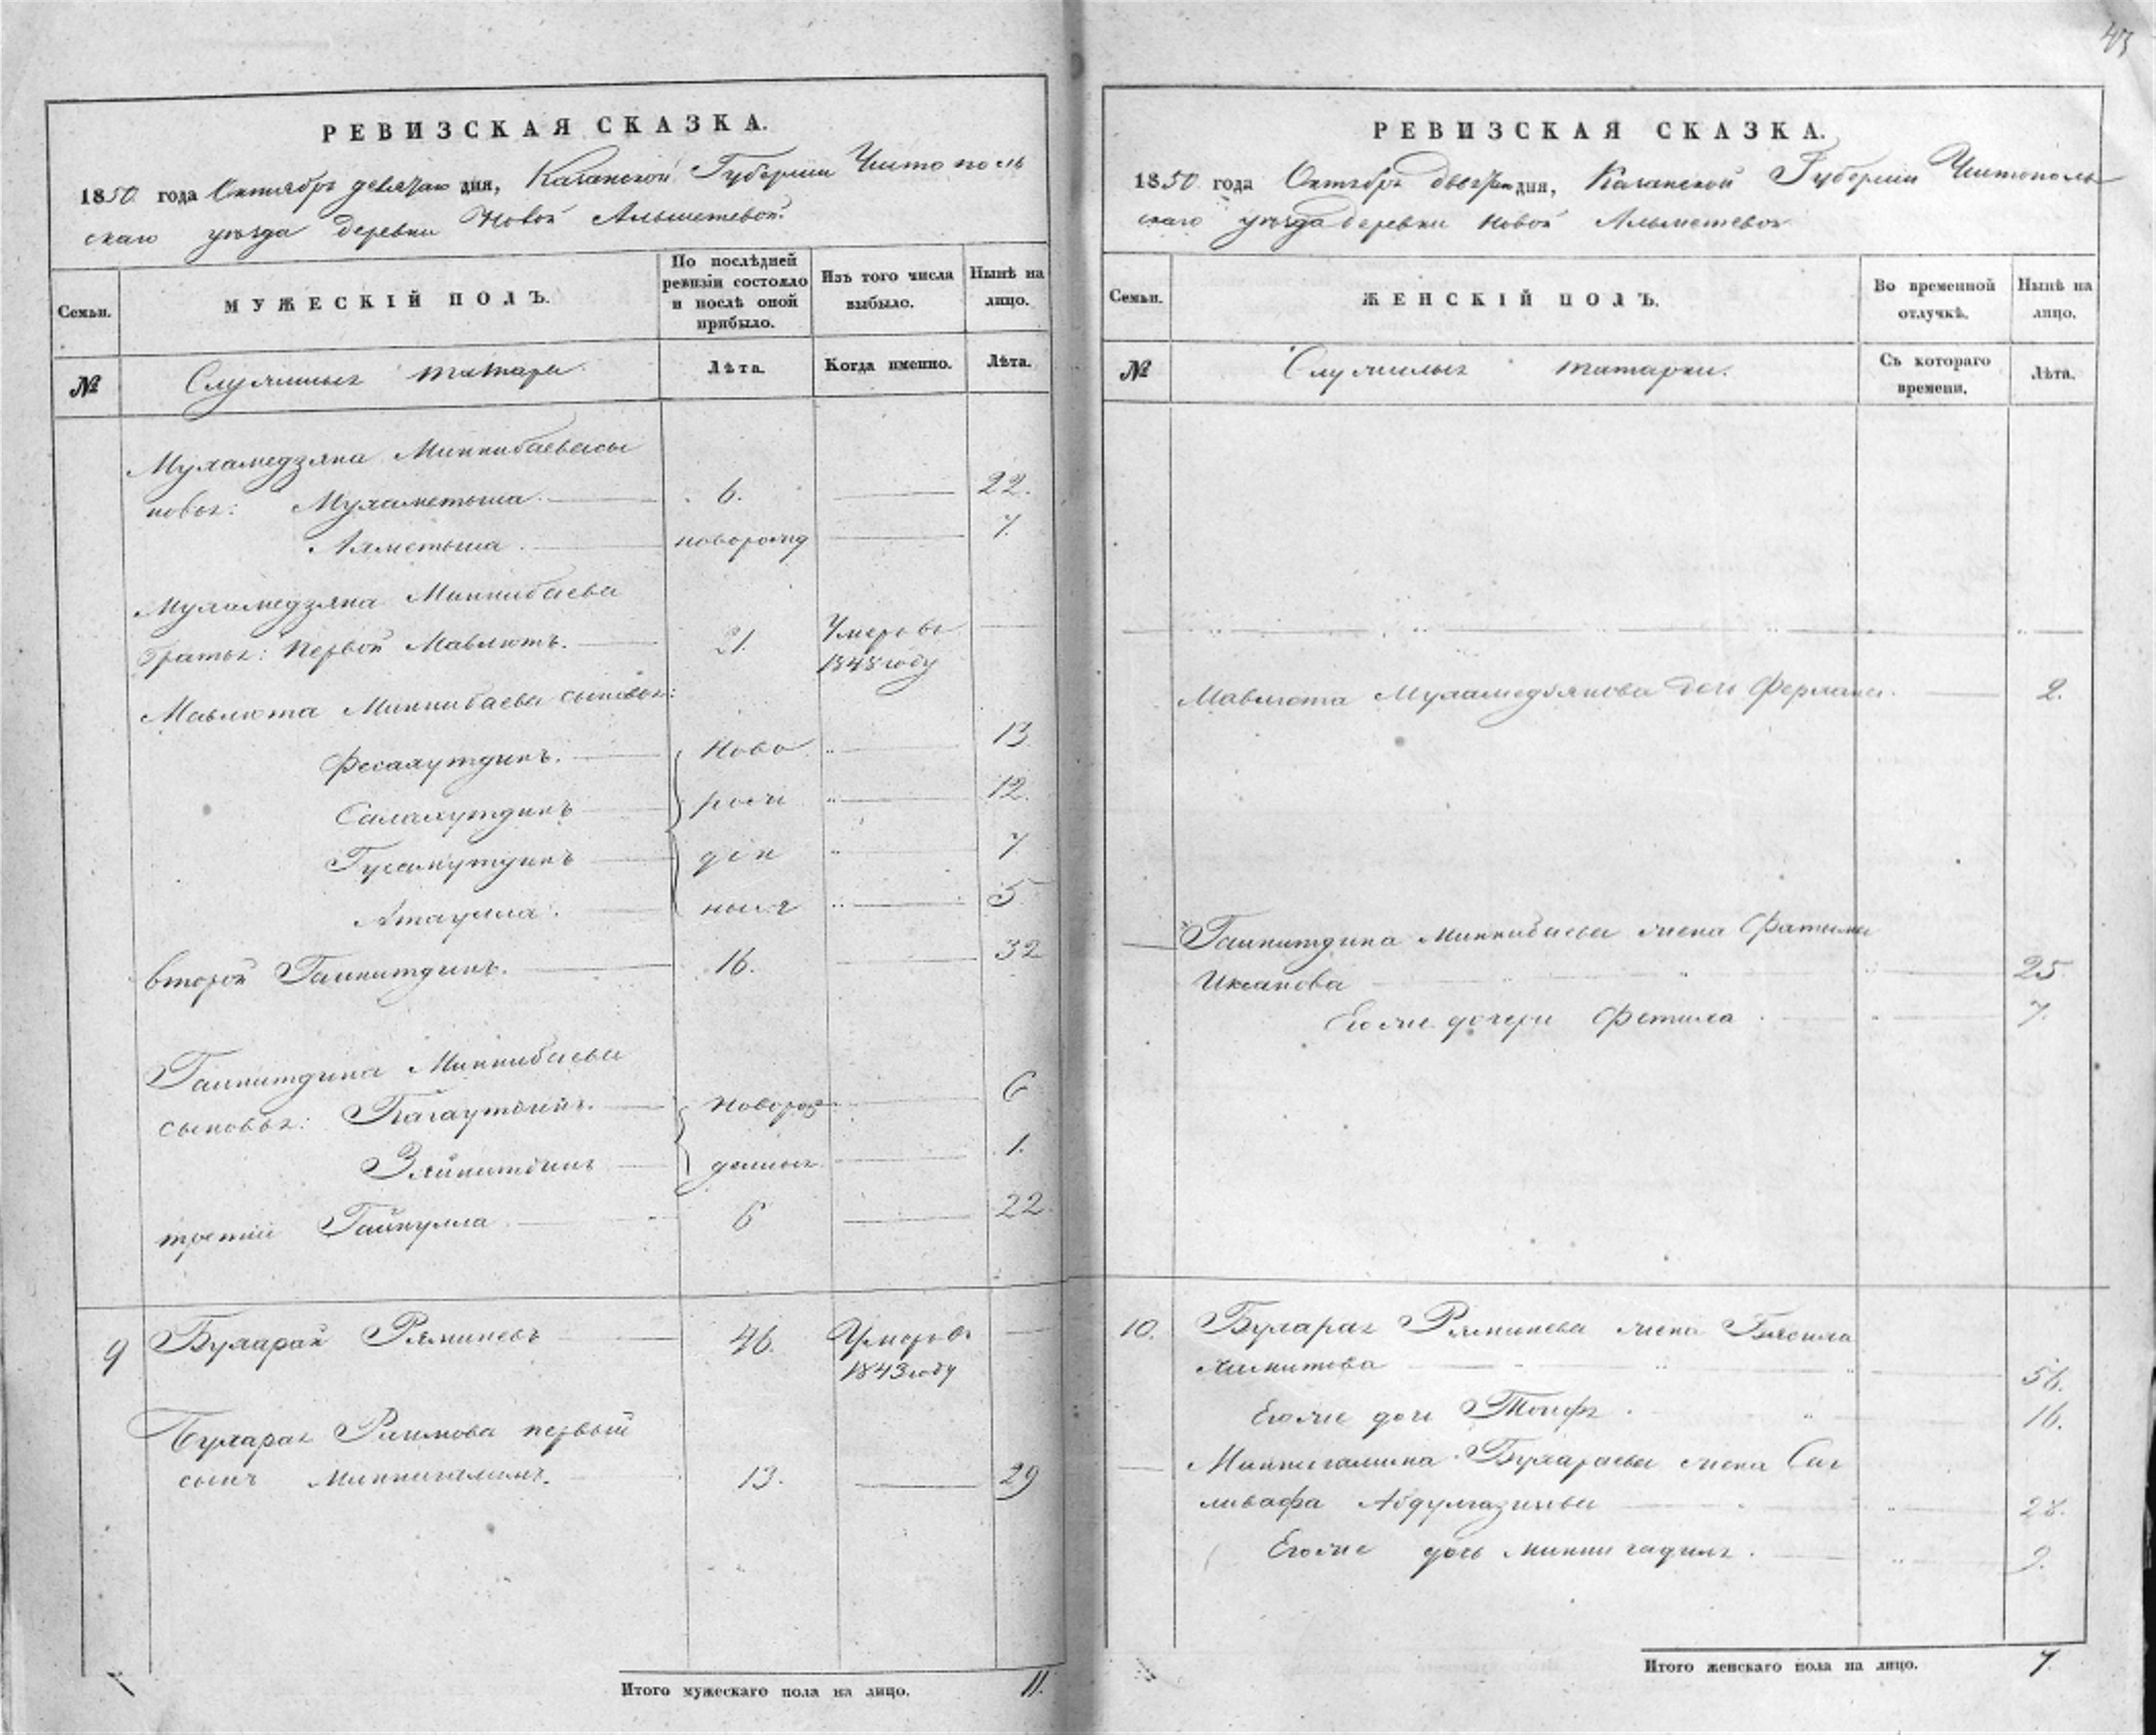 43
РЕВИЗСКАЯ СКАЗКА.
1850 года Октября девятаго дня, Казанской Губернiи Чистополь
скаго уѣзда деревни Новой Альметевой
Семьи.
МУЖЕСКІЙ ПОЛЪ.
По послѣдней ревизіи состояло и послѣ оной прибыло.
Изъ того числа выбыло.
Нынѣ на лицо.
№
Служилыхъ татаръ
Лѣта.
Когда именно.
Лѣта.
Мухамедзяна Миннибаева сы
новья: Мухаметьша 6. 22.
Ахметьша новорожд 7.
Мухамедзяна Миннибаева
братья: первой Мавлютъ. 21. Умеръ въ
1848 году
Мавлюта Миннибаева сыновья:
Фесахутдинъ. Ново 13
Салахутдинъ рож 12.
Гусамутдинъ ден 7
Атаулла. ные 5
второй Гайнитдинъ. 16. 32
Гайнитдина Миннибаева
сыновья: Багаутдинъ. новорож 6
Зайнитдинъ денные 1.
третий Гайнулла 6 22.
9 Бухарай Умеръ въ 46.
1843 году
Бухарая первый
сынъ Миннигалимъ. 13. 29
Итого мужескаго пола на лицо. 11.
РЕВИЗСКАЯ СКАЗКА.
1850 года Октября дня, Казанской Губерніи Чистополь
скаго уѣзда деревни Новой Альметевой
Семьи.
ЖЕНСКІЙ ПОЛЪ.
Во временной отлучкѣ.
Нынѣ на лицо.
№
Служилыхъ татарки.
Съ котораго времени.
Лѣта.
Мавлюта Мухамедзянова дочь 2.
Гайнитдина Миннибаева жена Фатыма
25.
Его же дочери 7.
10. Бухарая жена
Хамитова 56.
Его же дочь 16.
Миннигалима Бухараева жена Саг
28.
Его же дочь 9.
Итого женскаго пола на лицо. 7.